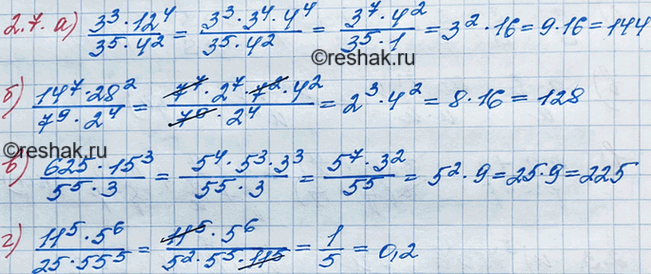 2.7. а) \frac{3^3 · 12^4}{3^5 · 4^2} = \frac{3^3 · 3^4 · 4^4}{3^5 · 4^2} = \frac{3^7 · 4^2}{3^5 · 1} = 3^2 · 16 = 9 · 16 = 144
©reshak.ru
б) \frac{14^7 · 28^2}{7^9 · 2^4} = \frac{7^7 · 2^7 · 7^2 · 4^2}{7^9 · 2^4} = 2^3 · 4^2 = 8 · 16 = 128
©reshak.ru
в) \frac{625 · 15^3}{5^5 · 3} = \frac{5^4 · 5^3 · 3^3}{5^5 · 3} = \frac{5^7 · 3^2}{5^5} = 5^2 · 9 = 25 · 9 = 225
г) \frac{11^5 · 5^6}{25 · 55^5} = \frac{11^5 · 5^6}{5^2 · 5^5 · 11^5} = \frac{1}{5} = 0,2